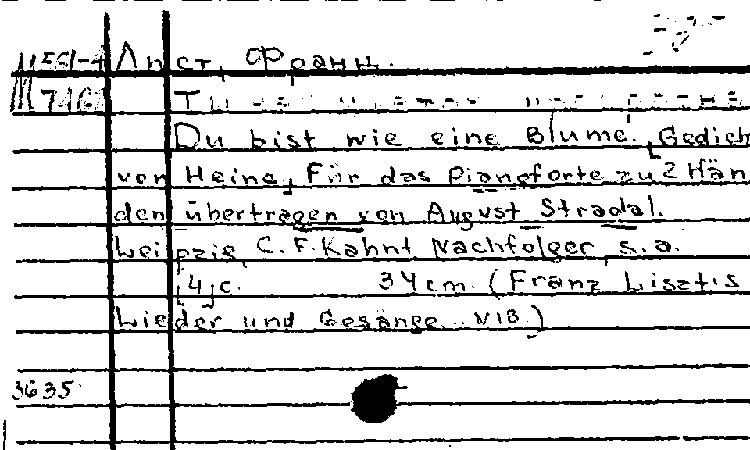 М561-4 Лист, Франц.
Ш716 Ты
Du bist wie eine Blume. Gedich
von Heine, Für das Pianoforte zu 2 Hän
den übertragen von August Stradal.
Leipzig, C. F. Kahnt Nachfolger, s.a.
4 c. 34 cm. (Franz Liszt's
Lieder und Gesänge. N18.)
3635